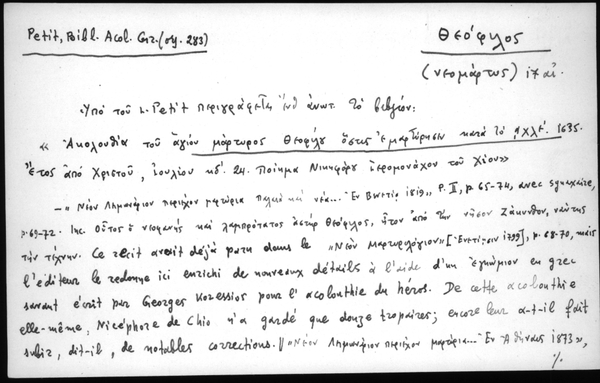 Petit, Bibl. Acol. Grz. (σγ. 283)
Θεόφιλος
(νεομάρτυς) 17 αἰ.
Ὑπό τοῦ L. Petit περιγράφεται ἐνθ ἀνωτ. τό βιβλίον:
« Ἀκολουθία τοῦ ἁγίου μάρτυρος Θεοφίλου ὅστις ἐμαρτύρησεν κατά τό ͵αχλέ. 1635.
Ἔτος ἀπό Χριστοῦ, Ἰουλίου κδ. 24. Ποίημα Νικηφόρου ἱερομονάχου τοῦ Χίου»
— "Νέον Λημονάριον περιέχον μαρτύρια παλαιά καί νέα... Ἐν Βενετίᾳ 1819,, P. II, p. 65-74, avec synaxaire,
p. 69-72. Inc. Οὗτος ὁ νεοφανής καί λαμπρότατος ἀστήρ Θεόφιλος, ἦτον ἀπό τήν νῆσον Ζάκυνθον, ναύτης
τήν τέχνην. Ce récit avait déjà paru dans le "Νέον Μαρτυρολόγιον" [Ἐνετίῃσιν 1799], p. 68-70, mais
l'éditeur le redonne ici enrichi de nouveaux détails à l'aide d'un ἐγκώμιον en grec
savant écrit par Georges Koressios pour l'acolouthie du héros. De cette acolouthie
elle-même, Nicéphore de Chio n'a gardé que douze tropaires; encore leur a-t-il fait
subir, dit-il, de notables corrections. || "Νέον Λημονάριον περιέχον μαρτύρια... Ἐν Ἀθήναις 1873",
%.